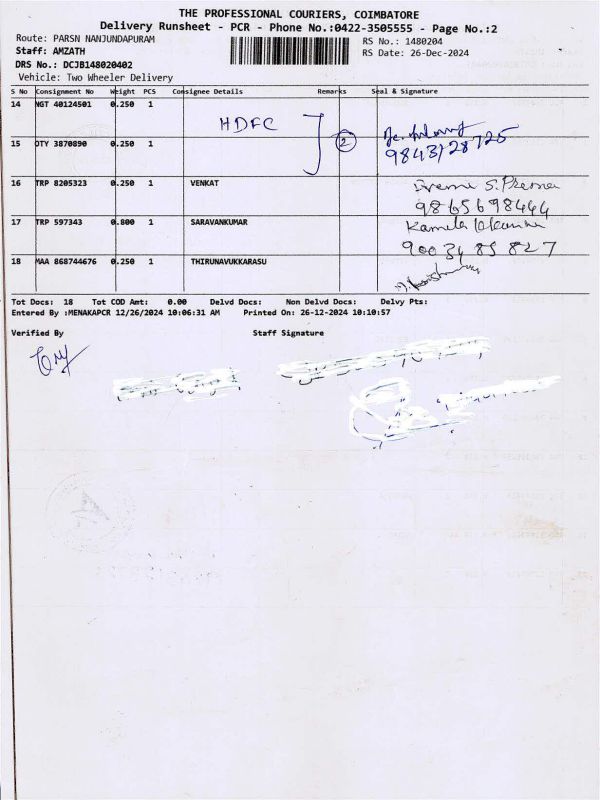 THE PROFESSIONAL COURIERS, COIMBATORE
Delivery Runsheet - PCR - Phone No.:0422-3505555 - Page No.:2
Route: PARSN NANJUNDAPURAM
RS No.: 1480204
Staff: AMZATH
RS Date: 26-Dec-2024
DRS No.: DCJB148020402
Vehicle: Two Wheeler Delivery
S No Consignment No Weight PCS Consignee Details Remarks Seal & Signature
14 NGT 40124501 0.250 1
HDFC 2
15 OTY 3870890 0.250 1
9843128725
16 TRP 8205323 0.250 1 VENKAT
9865698444
17 TRP 597343 0.800 1 SARAVANKUMAR
Kamala
9003485827
18 MAA 868744676 0.250 1 THIRUNAVUKKARASU
Tot Docs: 18 Tot COD Amt: 0.00 Delvd Docs: Non Delvd Docs: Delvy Pts:
Entered By :MENAKAPCR 12/26/2024 10:06:31 AM Printed On: 26-12-2024 10:10:57
Verified By Staff Signature